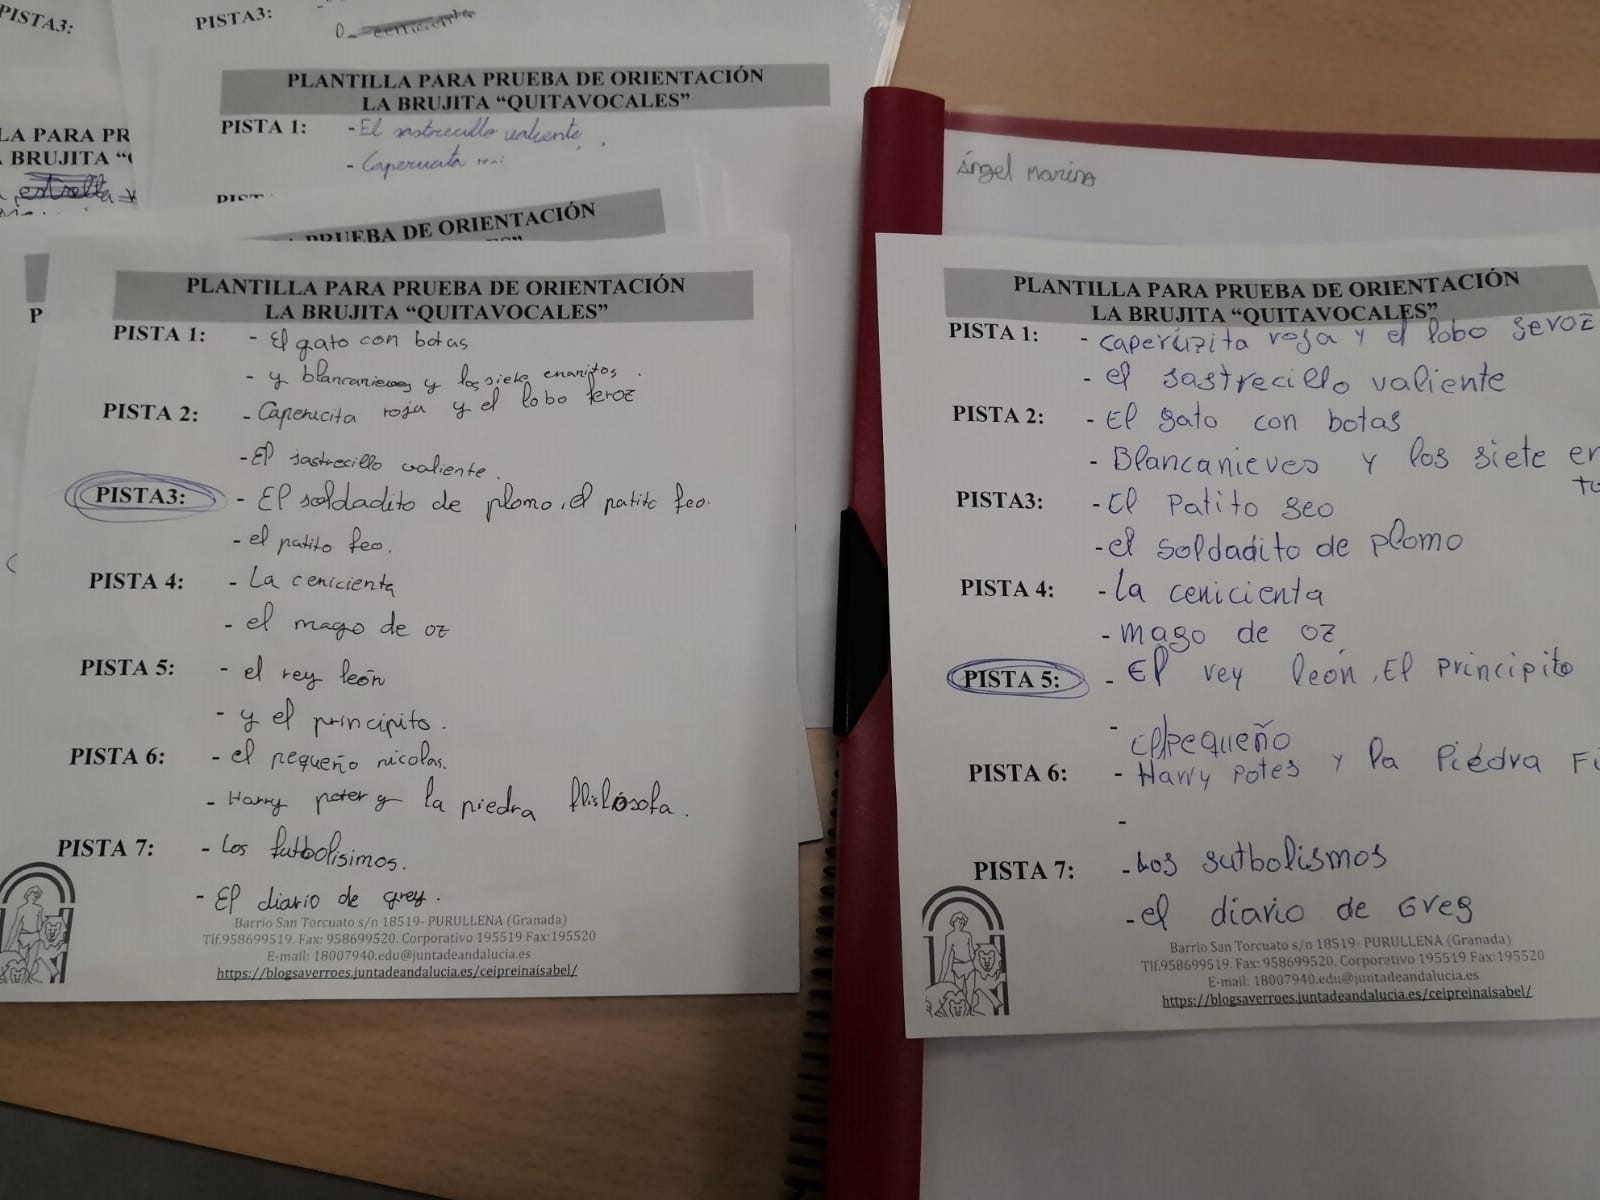 PISTA3:
PISTA3:
PLANTILLA PARA PRUEBA DE ORIENTACIÓN
LA BRUJITA “QUITAVOCALES”
PISTA 1: - El sastrecillo valiente
LA PARA PR
BRUJITA “
estrella
PRUEBA DE ORIENTACIÓN
P
PLANTILLA PARA PRUEBA DE ORIENTACIÓN
LA BRUJITA “QUITAVOCALES”
PISTA 1: - El gato con botas
- y blancanieves y los siete enanitos.
PISTA 2: - Caperucita roja y el lobo feroz
- El sastrecillo valiente.
PISTA3: - El soldadito de plomo, el patito feo.
- el patito feo.
PISTA 4: - La cenicienta
- el mago de oz
PISTA 5: - el rey león
- y el principito.
PISTA 6: - el pequeño nicolas.
- Harry poter y la piedra
PISTA 7: - Los futbolisimos.
- El diario de grey.
Barrio San Torcuato s/n 18519- PURULLENA (Granada)
Tlf.958699519. Fax: 958699520. Corporativo 195519 Fax:195520
E-mail: 18007940.edu@juntadeandalucia.es
https://blogsaverroes.juntadeandalucia.es/ceipreinaisabel/
Ángel Marina
PLANTILLA PARA PRUEBA DE ORIENTACIÓN
LA BRUJITA “QUITAVOCALES”
PISTA 1: - caperuzita roja y el lobo feroz
- el sastrecillo valiente
PISTA 2: - El gato con botas
- Blancanieves y los siete en
PISTA3: - El Patito feo
- el soldadito de plomo
PISTA 4: - la cenicienta
- mago de oz
PISTA 5: - El rey león, El principito
- pequeño
PISTA 6: - Harry Potes y la Piedra Fi
-
PISTA 7: - Los futbolismos
- el diario de Greg
Barrio San Torcuato s/n 18519- PURULLENA (Granada)
Tlf.958699519. Fax: 958699520. Corporativo 195519 Fax:195520
E-mail: 18007940.edu@juntadeandalucia.es
https://blogsaverroes.juntadeandalucia.es/ceipreinaisabel/